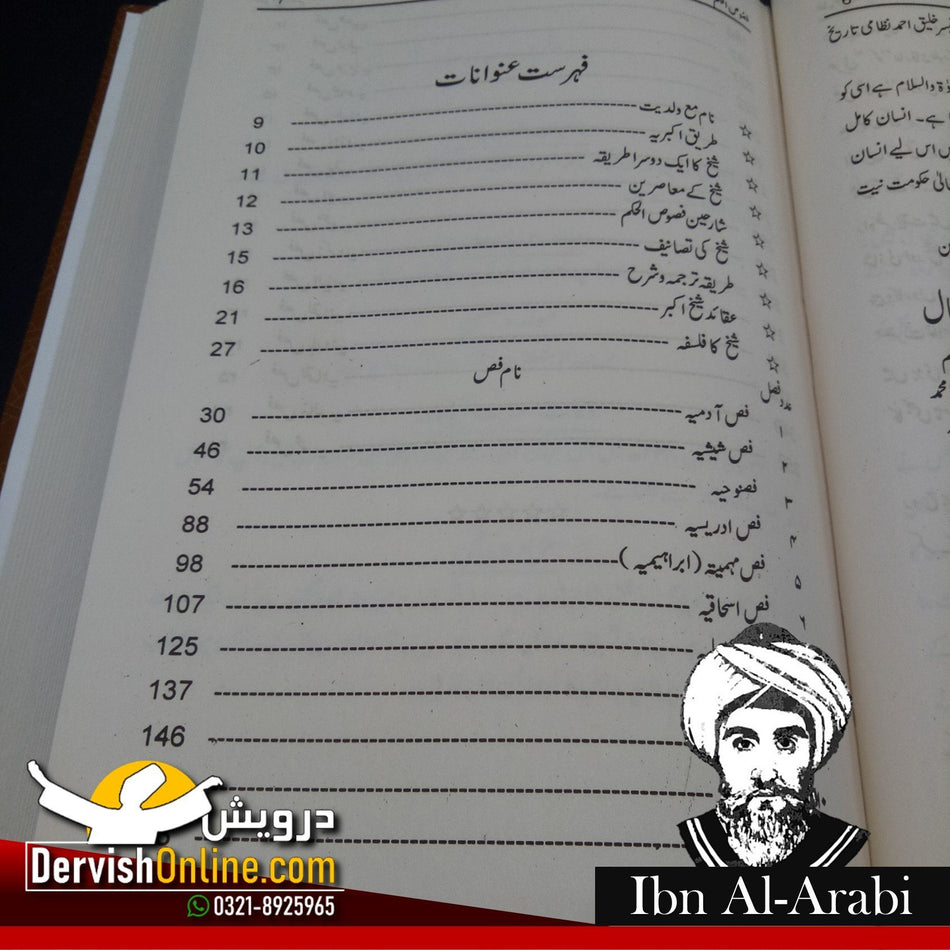 فہرست عنوانات
☆ نام مع ولدیت ---------- 9
☆ طریق اکبریہ ---------- 10
☆ شیخ کا ایک دوسرا طریقہ ---------- 11
☆ شیخ کے معاصرین ---------- 12
☆ شارحین فصوص الحکم ---------- 13
☆ شیخ کی تصانیف ---------- 15
☆ طریقہ ترجمہ و شرح ---------- 16
☆ عقائد شیخ اکبر ---------- 21
☆ شیخ کا فلسفہ ---------- 27
عدد فص نام فص
۱ فص آدمیہ ---------- 30
۲ فص شیثیہ ---------- 46
۳ فص نوحیہ ---------- 54
۴ فص ادریسیہ ---------- 88
۵ فص مہیمیتہ (ابراہیمیہ) ---------- 98
۶ فص اسحاقیہ ---------- 107
---------- 125
---------- 137
---------- 146
خلیق احمد نظامی تاریخ
والسلام ہے اسی کو
ہے۔ انسان کامل
اس لیے انسان
حکومت نیت
محمد
درویش
DervishOnline.com
0321-8925965
Ibn Al-Arabi